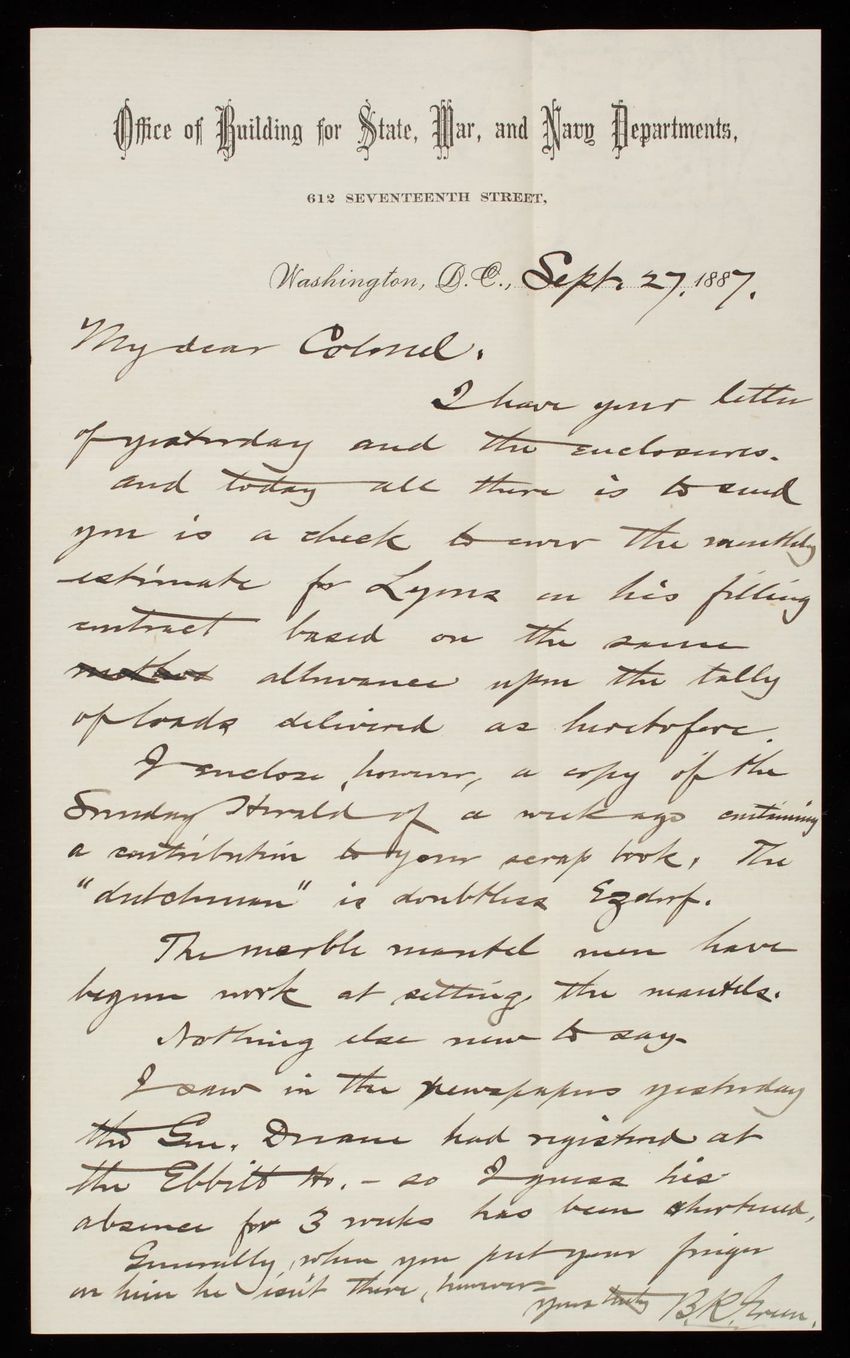 Office of Building for State, War, and Navy Departments,
612 SEVENTEENTH STREET,
Washington, D.C., Sept. 27, 1887.
My dear Colonel.
I have your letter
of yesterday and the enclosures.
and today all there is to send
you is a check to cover the monthly
estimate for Lyons on his filling
contract based on the same
allowance upon the tally
of loads delivered as heretofore.
I enclose, however, a copy of the
Sunday Herald of a week ago containing
a contribution to your scrap book. The
"dutchman" is doubtless Ezdorf.
The marble mantel men have
begun work at setting the mantels.
Nothing else new to say.
I saw in the newspapers yesterday
that Gen. Duane had registered at
the Ebbitt Ho. - so I guess his
absence for 3 weeks has been shortened,
Generally, when you put your finger
on him he isn't there, however -
yours truly B.R. Green.